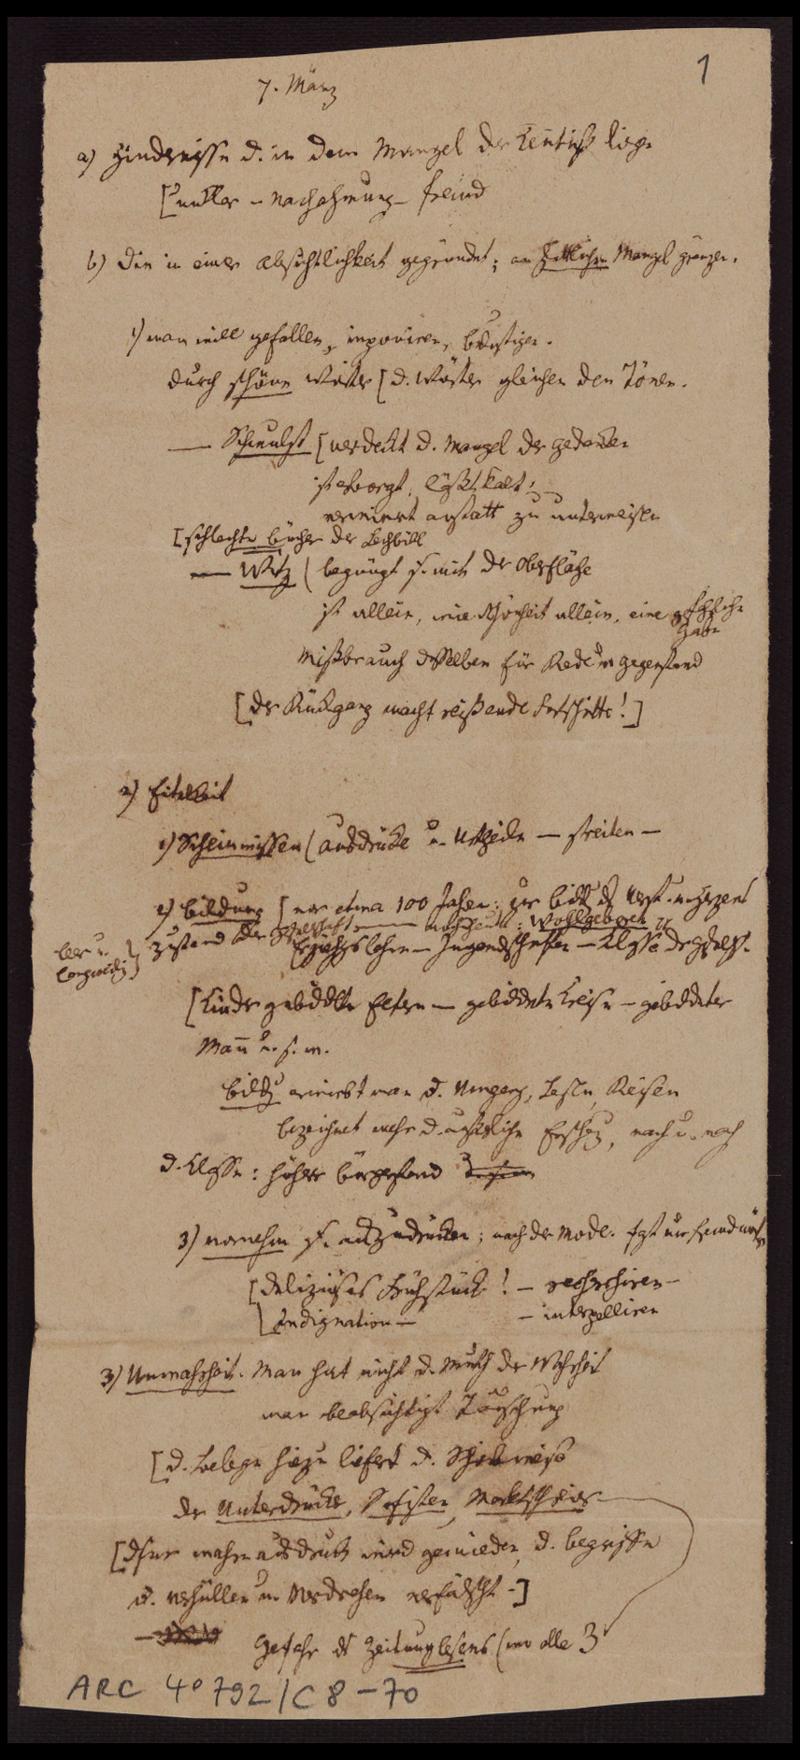 1
7. März
a) Hindernisse d. in dem Mangel der Kentniß liege
[ – Nachahmung – fremd
b) Die in einer Absichtlichkeit gegründet; an sittlichen Mangel gränzen.
1) man will gefallen, imponiren, belustigen.
durch schöne Wörter [d. Wörter gleichen den Tönen.
— Schwulst [verdeckt d. Mangel der Gedanken
ist erborgt, läßt kalt,
verwirrt anstatt zu unterweisen
[schlechte Bücher der
— Witz ( begnügt s. mit der Oberfläche
ist allein, wie Schönheit allein, eine gefährliche
Gabe
Mißbrauch desselben für Rede u Gegenstand
[der Rückgang macht reißende Fortschritte!]
2) Eitelkeit
1) Scheinwissen (Ausdrücke u. Urtheile — streiten —
2) Bildung [vor etwa 100 Jahren: zur
Zustand der Gesellschaft — : Wohlgeboren
leer u.
langweilig
Erziehgslehre — Jugendschriften — Klasse
[Kinder gebildeter Eltern — gebildete Kreise — gebildeter
Mann u. s. w.
Bildg erwirbt man d. Umgang, Lesen, Reisen
bezeichnet mehr d. äußerliche Erscheing, nach u. nach
d. Klasse: höherer Bürgerstand
3) vornehm s. auszudrücken; nach der Mode.
[Deliziöses Frühstück! — recherchiren —
Indignation — — interpelliren
3) Unwahrheit. Man hat nicht d. Muth der Wahrheit
man beabsichtigt Täuschung
[d. Belege hiezu liefert d. Schreibweise
der Unterdrücker, Sofisten, Marktschreier
[Der wahre Ausdruck wird gemieden, d. Begriffe
d. Verhüllen u Verdrehen verfälscht —]
Gefahr ds Zeitunglesens (wo alle 3
ARC 4° 792 / C 8 – 70